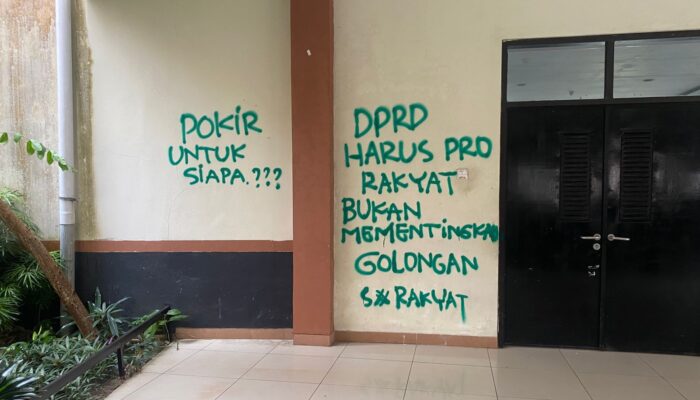 POKIR
UNTUK
SIAPA.???
DPRD
HARUS PRO
RAKYAT
BUKAN
MEMENTINGKAN
GOLONGAN
RAKYAT